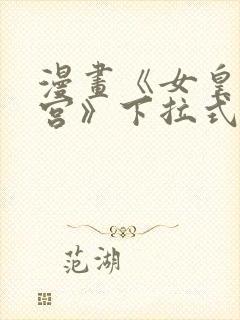 漫畫《女皇
宮》下拉式
范湖